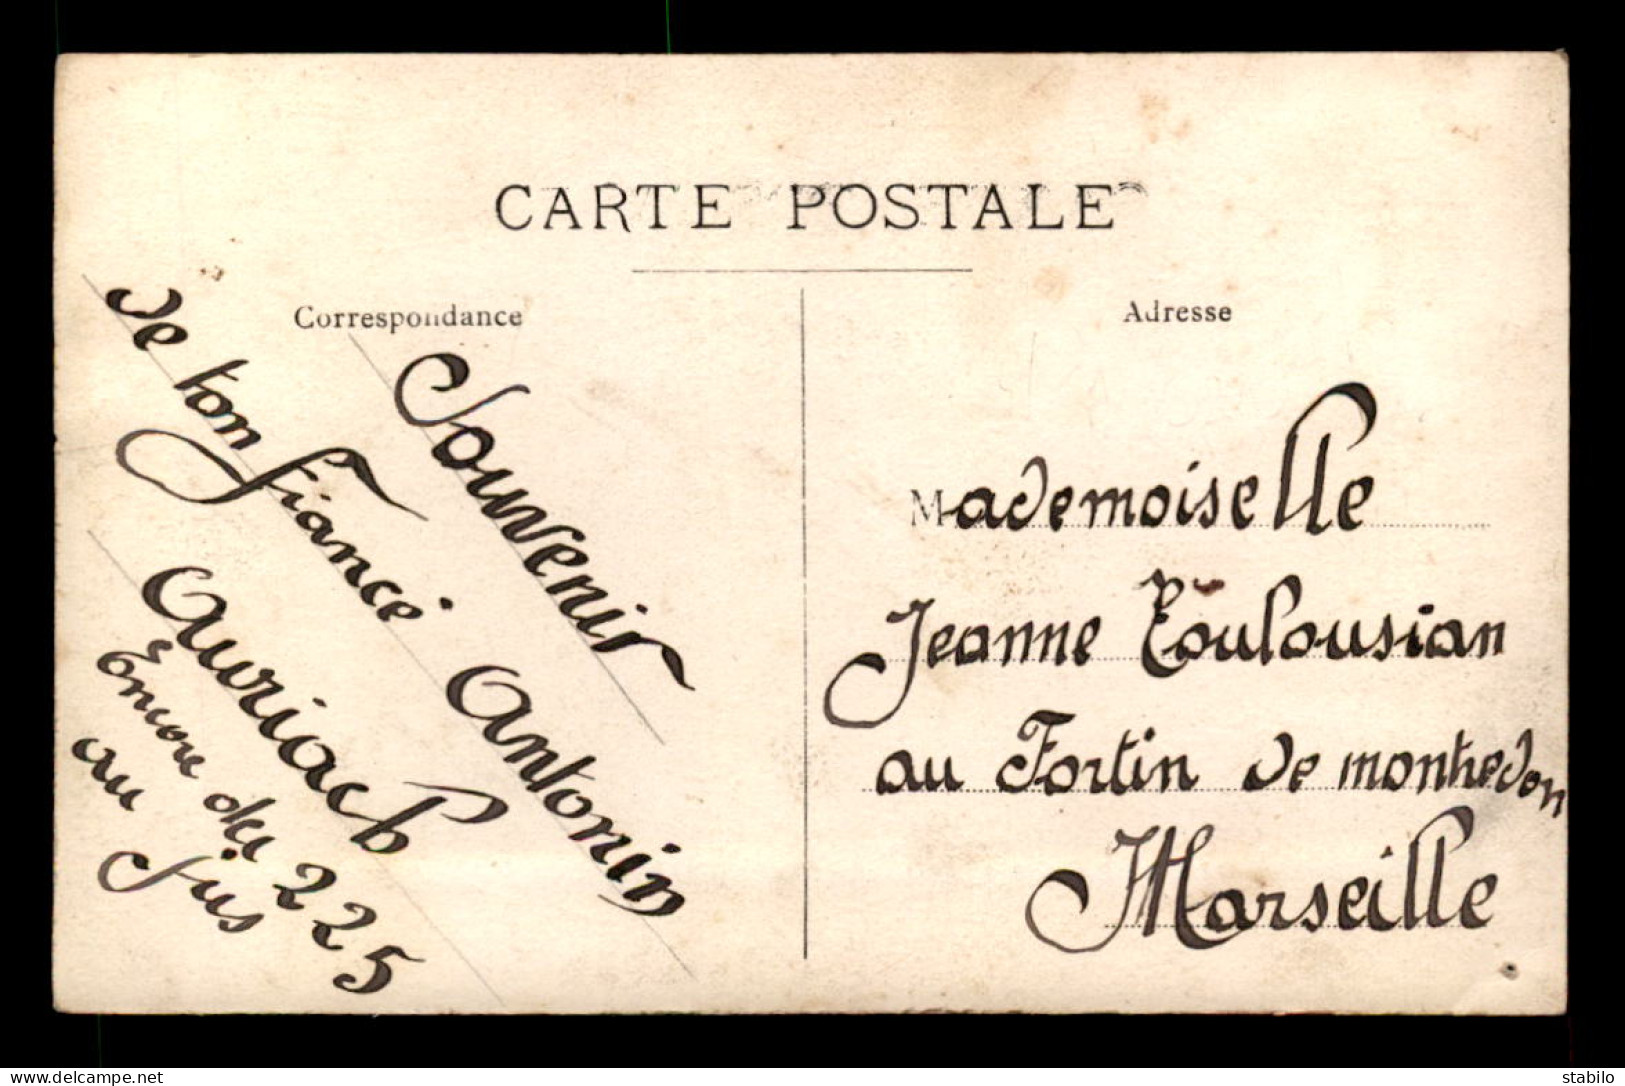 CARTE POSTALE
Correspondance
Souvenir
de ton fiancé Antonin
Auriach
Encore des 225
au jus
Adresse
Mademoiselle
Jeanne Toulousian
au Fortin de montredon
Marseille
www.delcampe.net
stabilo